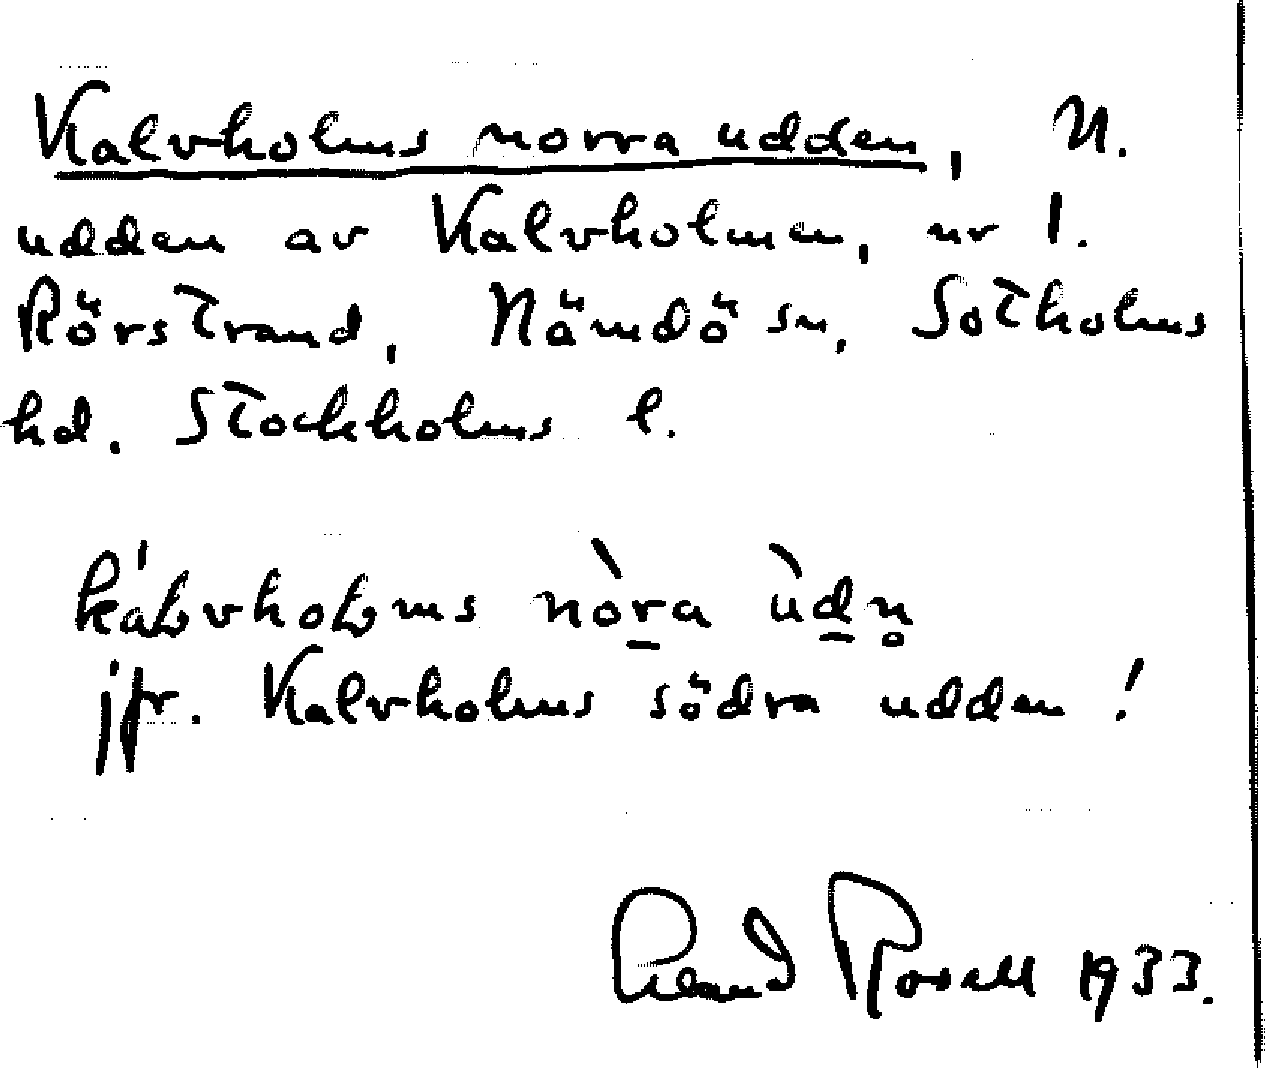 Kalvholms norra udden, N.
udden av Kalvholmen, nr 1.
Rörstrand, Nämdö sn, Sotholms
hd. Stockholms l.
kálvholms nòr̲a ùd̲n̥
jfr. Kalvholms södra udden!
1933.